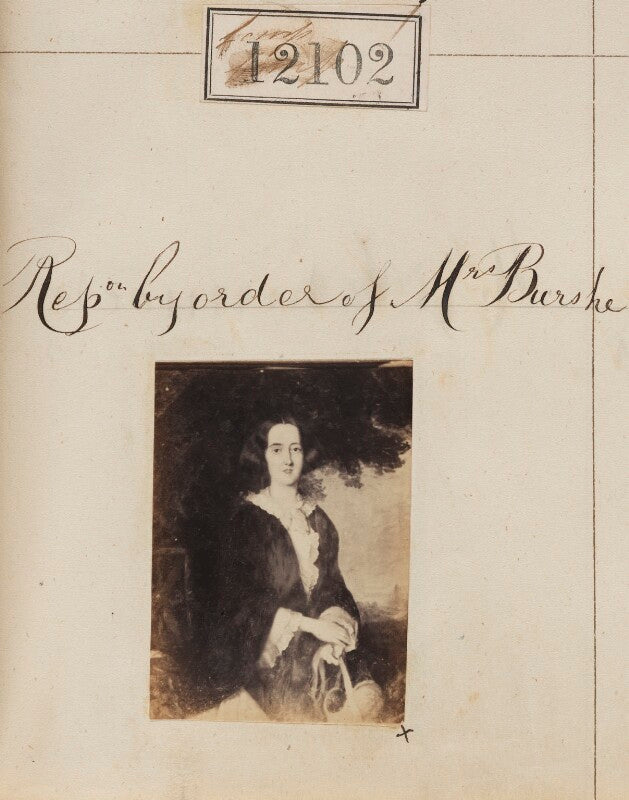 12102
Repon by order of Mrs Burshe
x